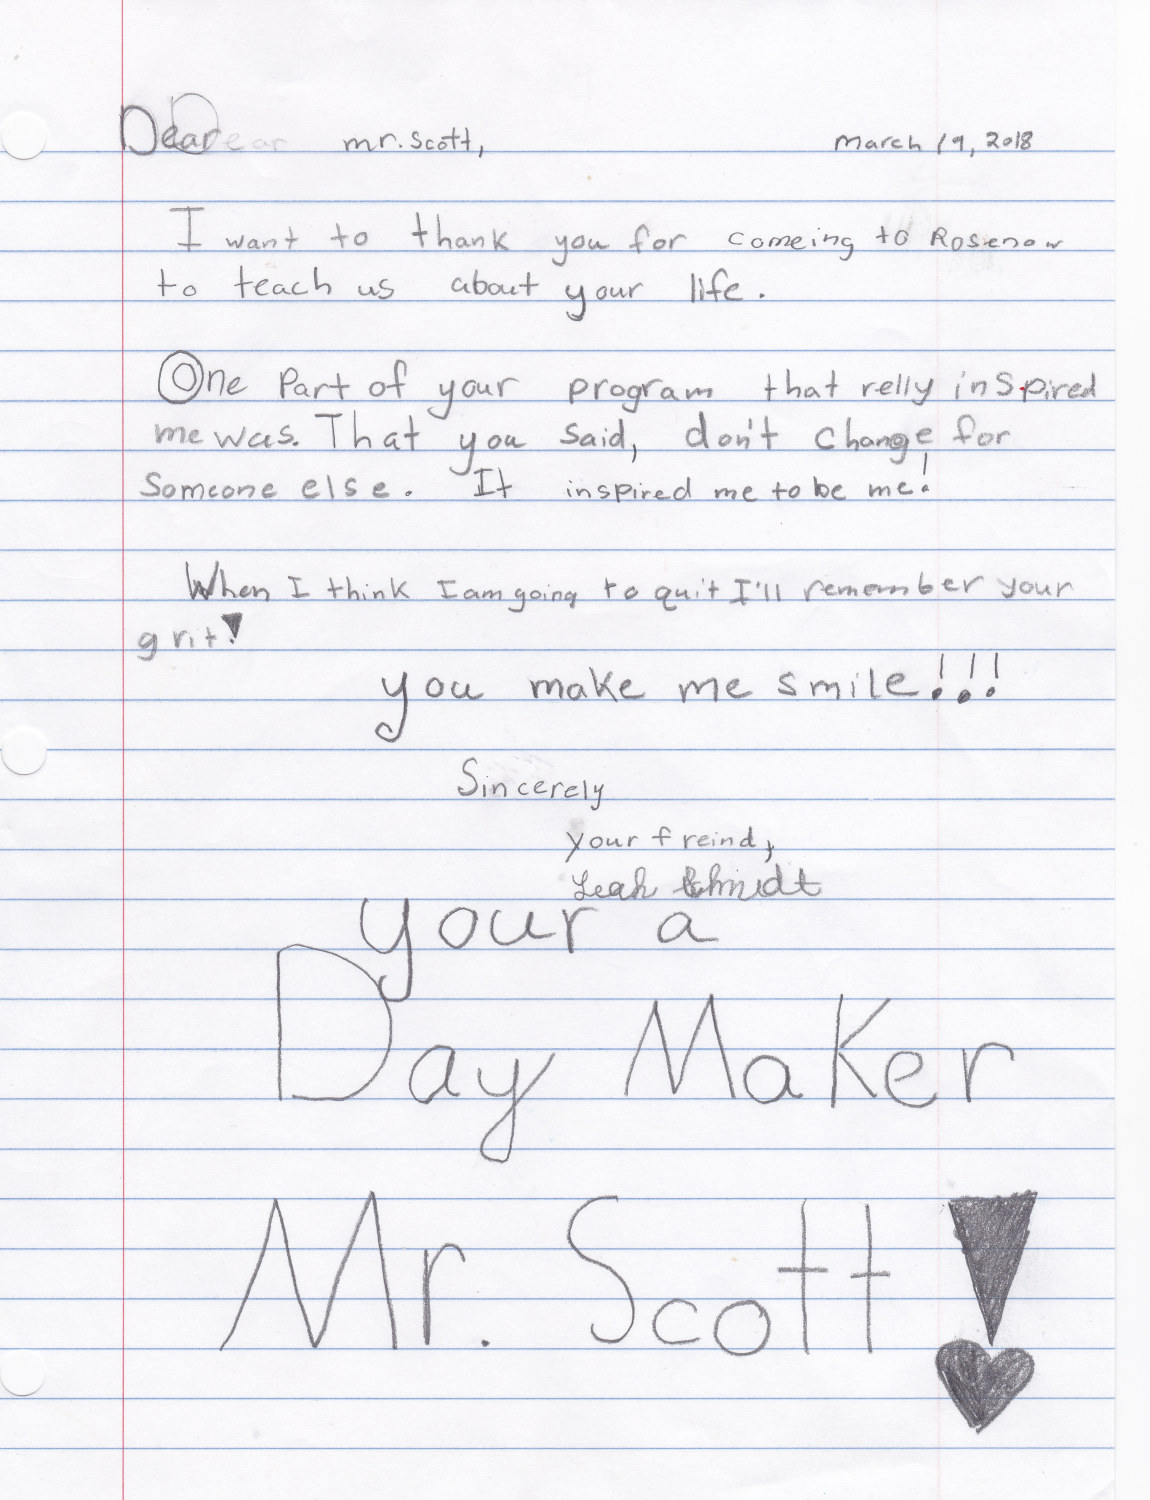 Dear mr. Scott, March 19, 2018
I want to thank you for comeing to Rosenow
to teach us about your life.
One Part of your program that relly inspired
me was. That you said, don't change for
Someone else. It inspired me to be me!
When I think I am going to quit I'll remember your
grit!
you make me smile!!!
Sincerely
your freind,
Leah Schmidt
your a
Day Maker
Mr. Scott!